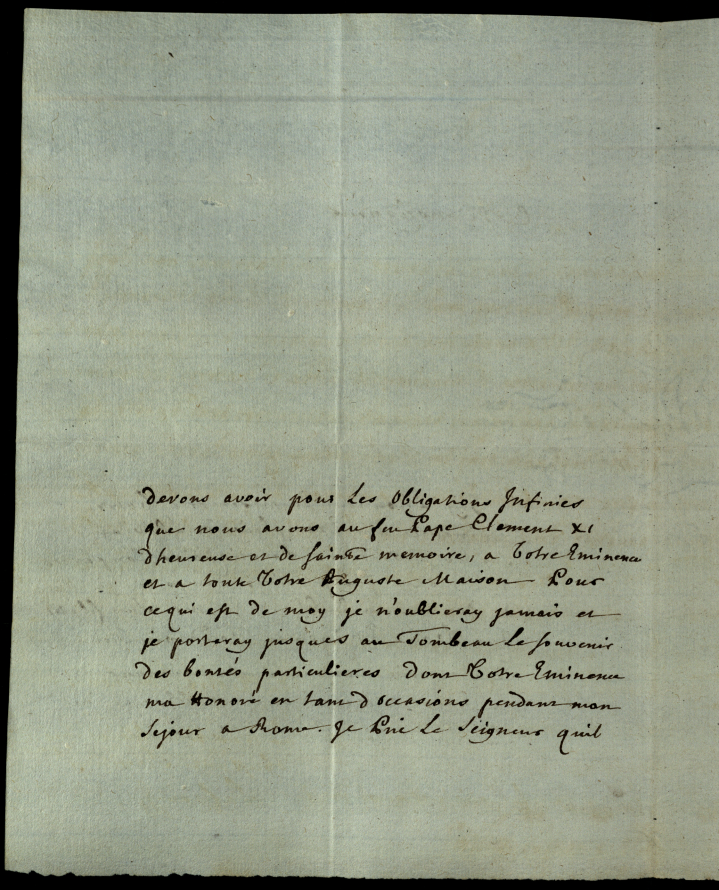 devons avoir pour Les Obligations Infinies
que nous avons au feu Pape Clement XI
d'heureuse et de sainte memoire, a Votre Eminence
et a toute Votre Auguste Maison Pour
cequi est de moy je n'oublieray jamais et
je porteray jusques au Tombeau Le souvenir
des bontés particulieres Dont Votre Eminence
ma Honoré en tant d'occasions pendant mon
Sejour a Rome. Je Prie Le Seigneur quil